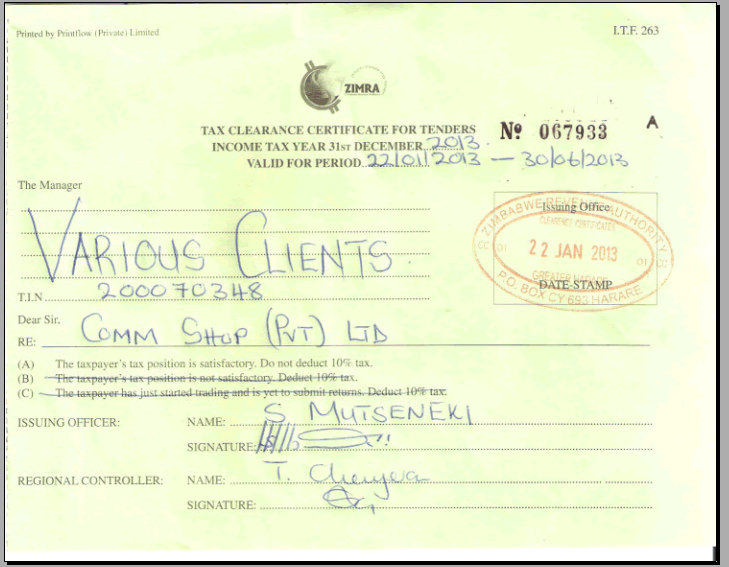 Printed by Printflow (Private) Limited
I.T.F. 263
ZIMRA
TAX CLEARANCE CERTIFICATE FOR TENDERS
Nº 067933 A
INCOME TAX YEAR 31ST DECEMBER 2013
VALID FOR PERIOD 22/01/2013 — 30/06/2013
The Manager
VARIOUS CLIENTS
Issuing Office
ZIMBABWE REVENUE AUTHORITY
CLEARENCE CERTIFICATES
CC 01 22 JAN 2013 01
GREATER HARARE
DATE-STAMP
P.O. BOX CY 693 HARARE
T.I.N 200070348
Dear Sir,
RE: COMM SHOP (PVT) LTD
(A) The taxpayer's tax position is satisfactory. Do not deduct 10% tax.
(B) The taxpayer's tax position is not satisfactory. Deduct 10% tax.
(C) The taxpayer has just started trading and is yet to submit returns. Deduct 10% tax.
ISSUING OFFICER: NAME: S MUTSENEKI
SIGNATURE:
REGIONAL CONTROLLER: NAME: T.
SIGNATURE: